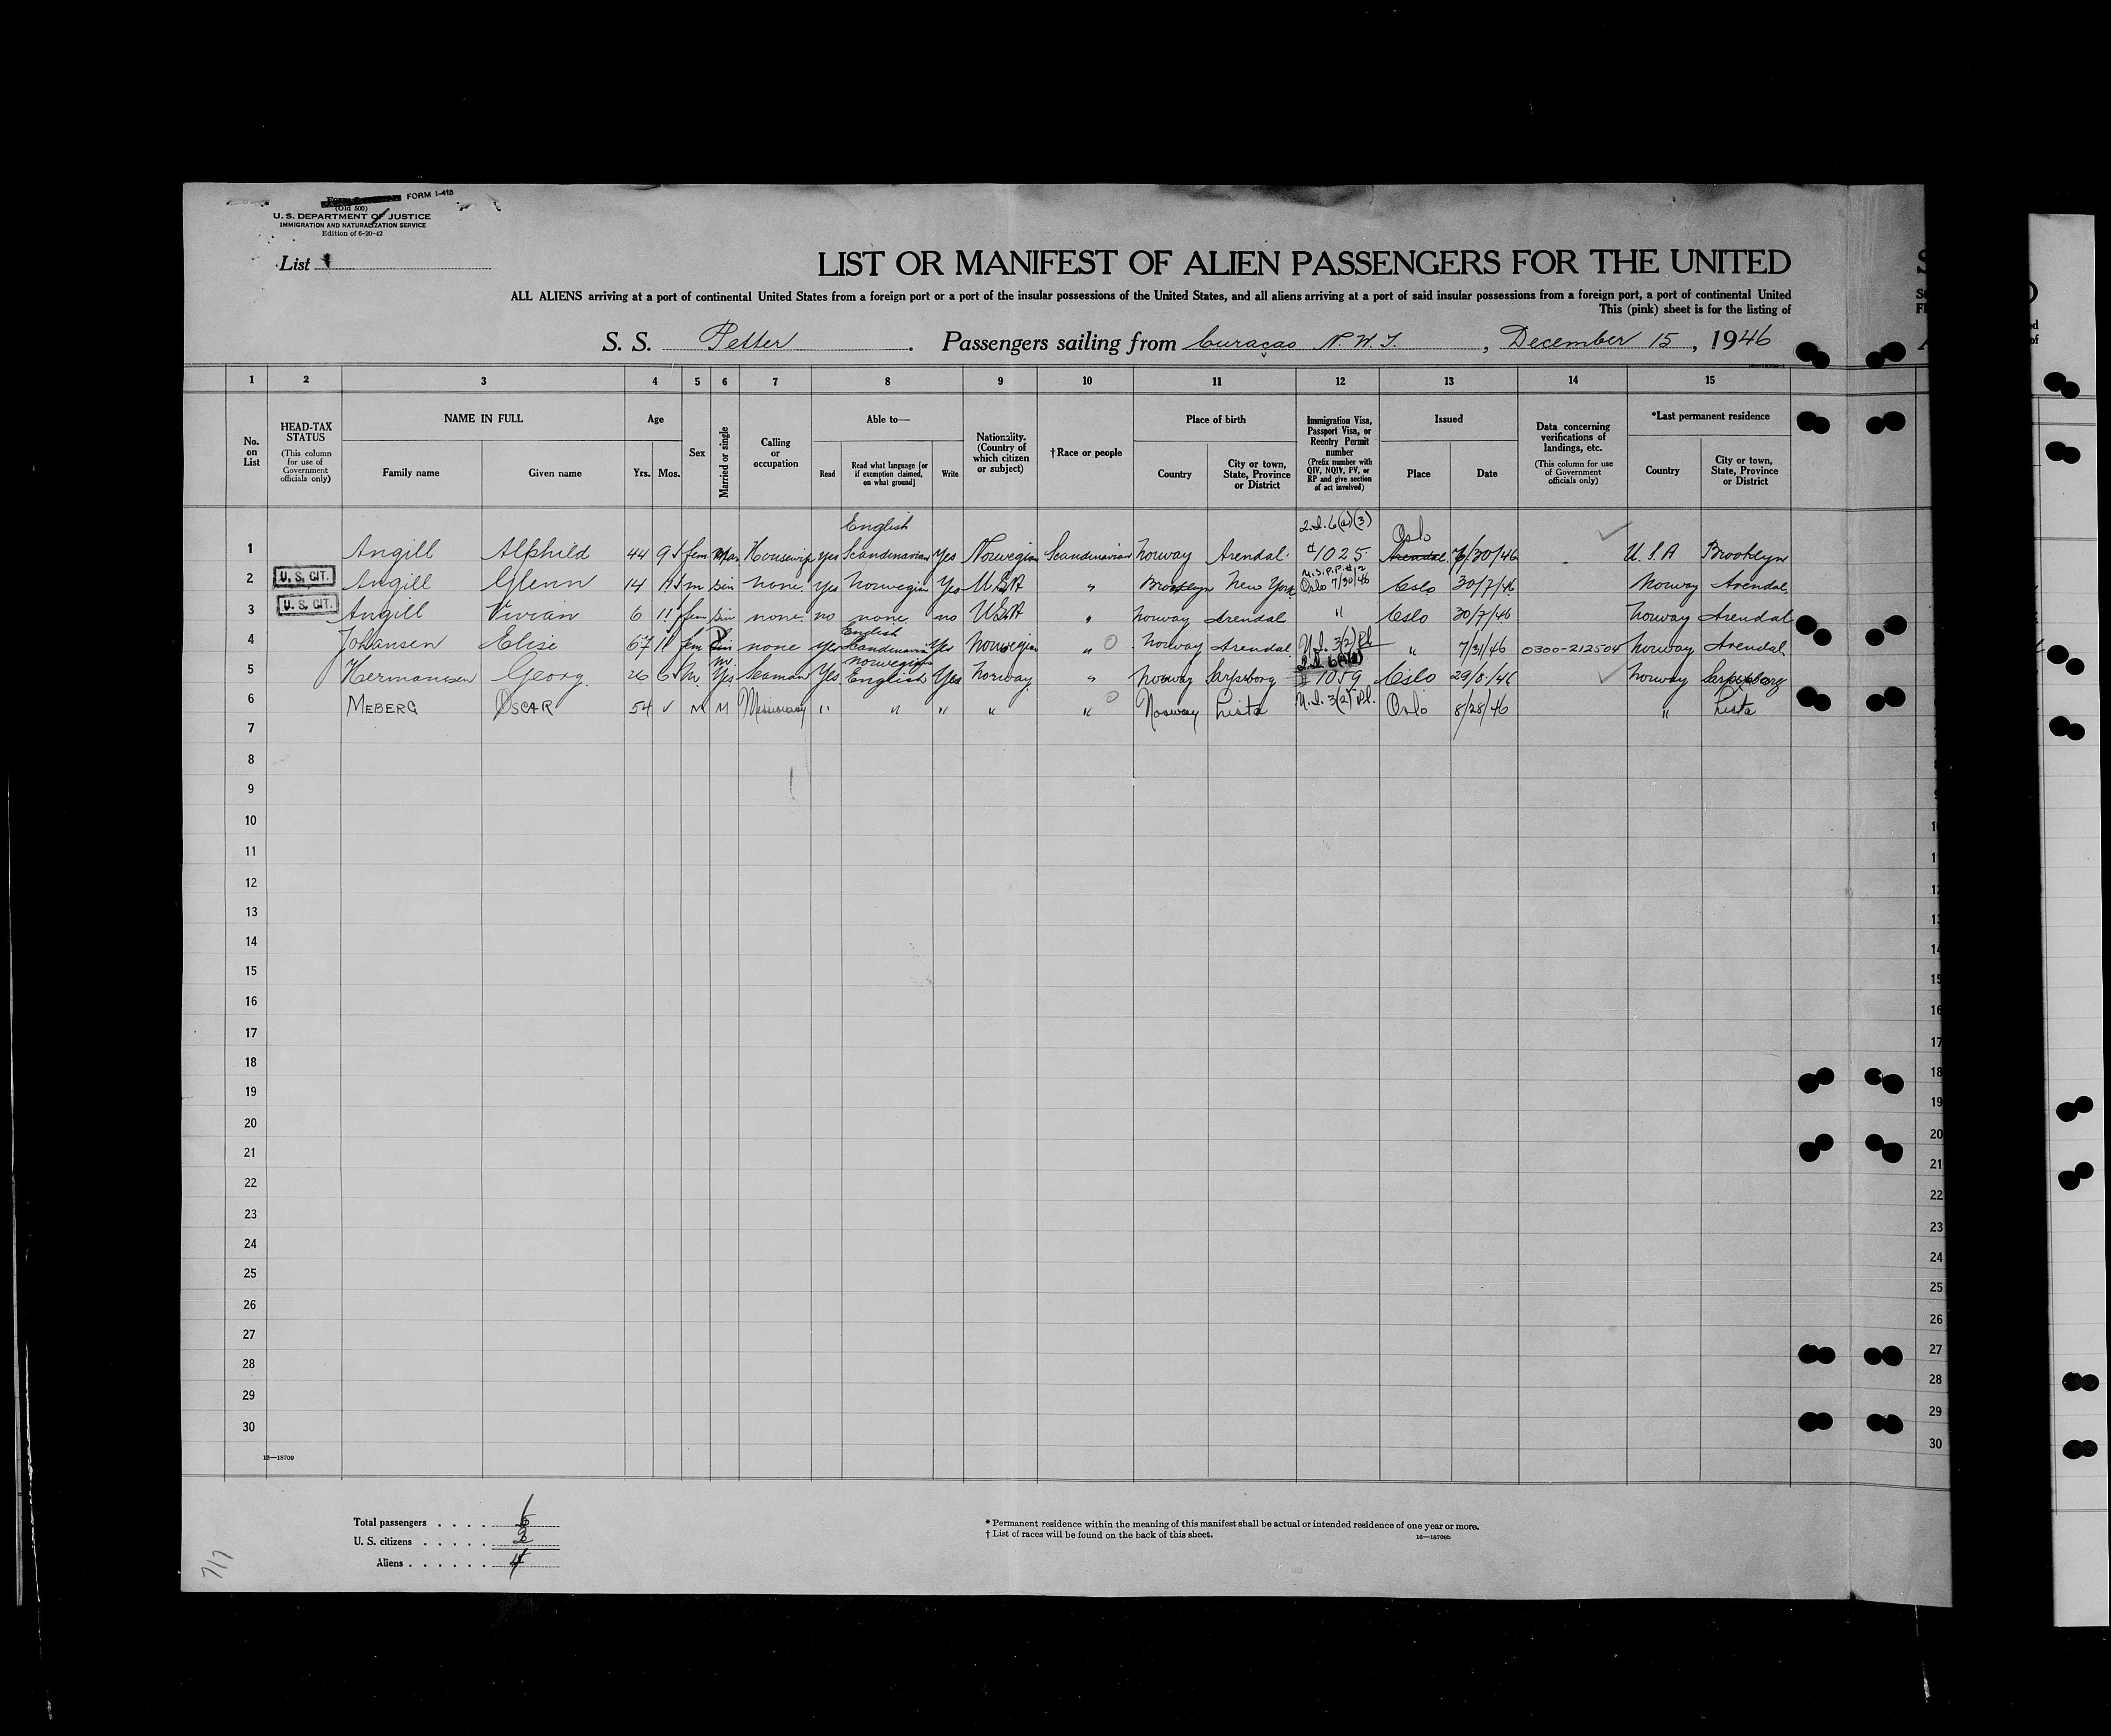 FORM I-415
(Old 500)
U. S. DEPARTMENT OF JUSTICE
IMMIGRATION AND NATURALIZATION SERVICE
Edition of 6-20-42
List
LIST OR MANIFEST OF ALIEN PASSENGERS FOR THE UNITED
ALL ALIENS arriving at a port of continental United States from a foreign port or a port of the insular possessions of the United States, and all aliens arriving at a port of said insular possessions from a foreign port, a port of continental United
This (pink) sheet is for the listing of
S. S. Petter . Passengers sailing from Curaçao N.W.I. , December 15 , 1946
1 2 3 4 5 6 7 8 9 10 11 12 13 14 15
No. on List
HEAD-TAX STATUS (This column for use of Government officials only)
NAME IN FULL
Family name Given name
Age
Yrs. Mos.
Sex
Married or single
Calling or occupation
Able to—
Read Read what language [or if exemption claimed, on what ground] Write
Nationality. (Country of which citizen or subject)
†Race or people
Place of birth
Country City or town, State, Province or District
Immigration Visa, Passport Visa, or Reentry Permit number (Prefix number with QIV, NQIV, PV, or RP and give section of act involved)
Issued
Place Date
Data concerning verifications of landings, etc. (This column for use of Government officials only)
*Last permanent residence
Country City or town, State, Province or District
English 6(a)(3) Oslo
1 Angill Alfhild 44 9 fem Mar Housewife yes Scandinavian Yes Norwegian Scandinavian Norway Arendal #1025 Arendal 7/30/46 U.S.A Brooklyn
2 U. S. CIT. Angill Glenn 14 11 m sin none yes Norwegian Yes USA " Brooklyn New York Oslo 7/30/46 Oslo 30/7/46 Norway Arendal
3 U. S. CIT. Angill Vivian 6 11 fem sin none no none no USA " Norway Arendal " Oslo 30/7/46 Norway Arendal
English
4 Johansen Elise 67 11 fem none yes Scandinavian Yes Norwegian " Norway Arendal 3(2) " 7/31/46 0300-212504 Norway Arendal
Norwegian
5 Hermansen Georg 26 6 M. Yes Seaman Yes English Yes Norway " Norway Sarpsborg # 1059 Oslo 29/8/46 Norway Sarpsborg
6 MEBERG OSCAR 54 M M Missionary " " " " " Norway Lista 3(2) Oslo 8/28/46 " Lista
7
8
9
10
11
12
13
14
15
16
17
18
19
20
21
22
23
24
25
26
27
28
29
30
16—18709
Total passengers . . . . 6
U. S. citizens . . . . . 2
Aliens . . . . . . 4
* Permanent residence within the meaning of this manifest shall be actual or intended residence of one year or more.
† List of races will be found on the back of this sheet.
16—18709b